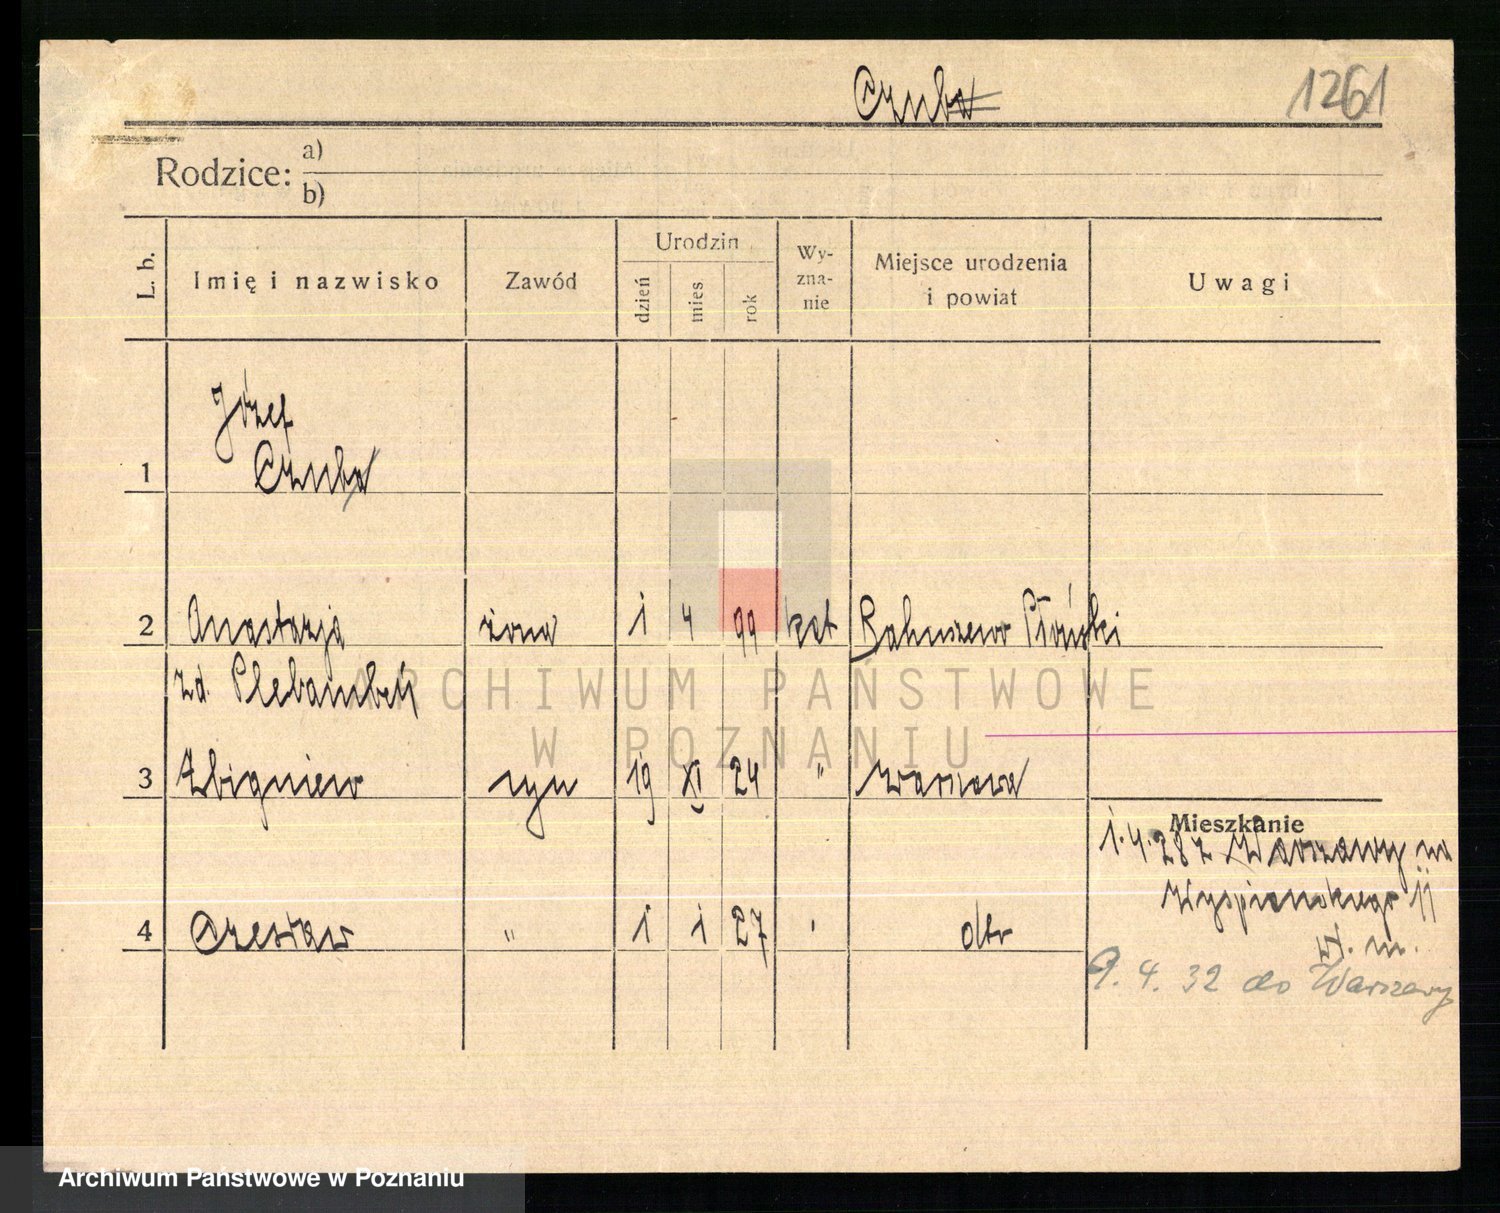 Czuba
1261
Rodzice: a)
b)
L. b.
Imię i nazwisko
Zawód
Urodzin
dzień
mies
rok
Wy-
zna-
nie
Miejsce urodzenia
i powiat
Uwagi
1
Józef
Czuba
2 Anastazja żona 1 4 99 kat Płoński
zd.
ARCHIWUM PAŃSTWOWE
W POZNANIU
3 Zbigniew syn 19 XI 24 " Warszawa
Mieszkanie
1.4.28 z Warszawy na
Wyspianskiego 11
4 Czesław " 1 1 27 " dto
9. 4. 32 do Warszawy
Archiwum Państwowe w Poznaniu